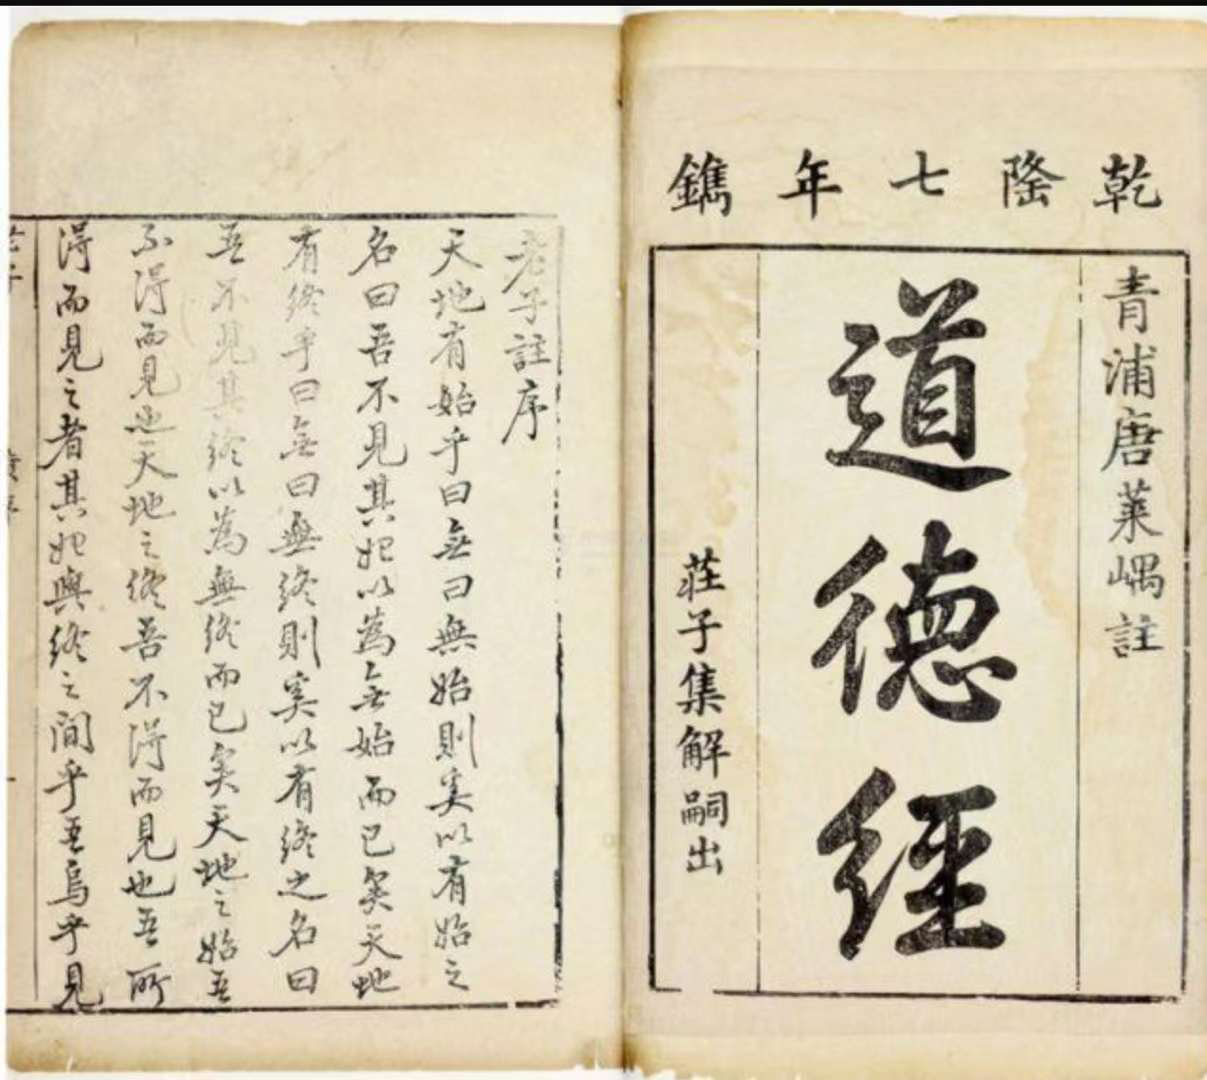 乾隆七年鐫
青浦唐莱嵎註
道德經
荘子集解嗣出
老子註序
天地有始乎曰無曰無始則奚以有始之
名曰吾不見其始以為無始而已矣天地
有終乎曰無曰無終則奚以有終之名曰
吾不見其終以為無終而已矣天地之始吾
不得而見也天地之終吾不得而見也吾所
得而見之者其始與終之間乎吾烏乎見